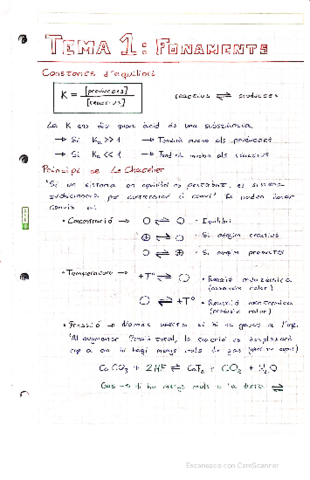 TEMA 1: FONAMENTS
Constants d'equilibri
K = [productes] / [reactius]
reactius ⇌ productes
La K ens diu quan àcid és una substància
→ Si Ka >> 1 → Tendrà més als productes
→ Si Ka << 1 → Tendrà més als reactius
Principi de Le Chatelier
"Si un sistema en equilibri es pertorbat, el sistema
evolucionarà per contrarestar el canvi" Es poden
canvis
• Concentració → ⇌ • Equilibri
⊕ ⇌ • Si afegim reactius
⇌ • Si afegim productes
• Temperatura → +T° ⇌ • Reacció endotèrmica
calor)
⇌ +T° • Reacció exotèrmica
calor)
• Pressió → Només afecta si hi ha gasos a l'eq.
"Al augmentar Pressió total, la reacció es desplaçarà
cap a on hi hagi menys mols de gas
CaCO3 + 2HF ⇌ CaF2 + CO2 + H2O
Gas → hi ha menys mols a la ⇌
Escaneado con CamScanner